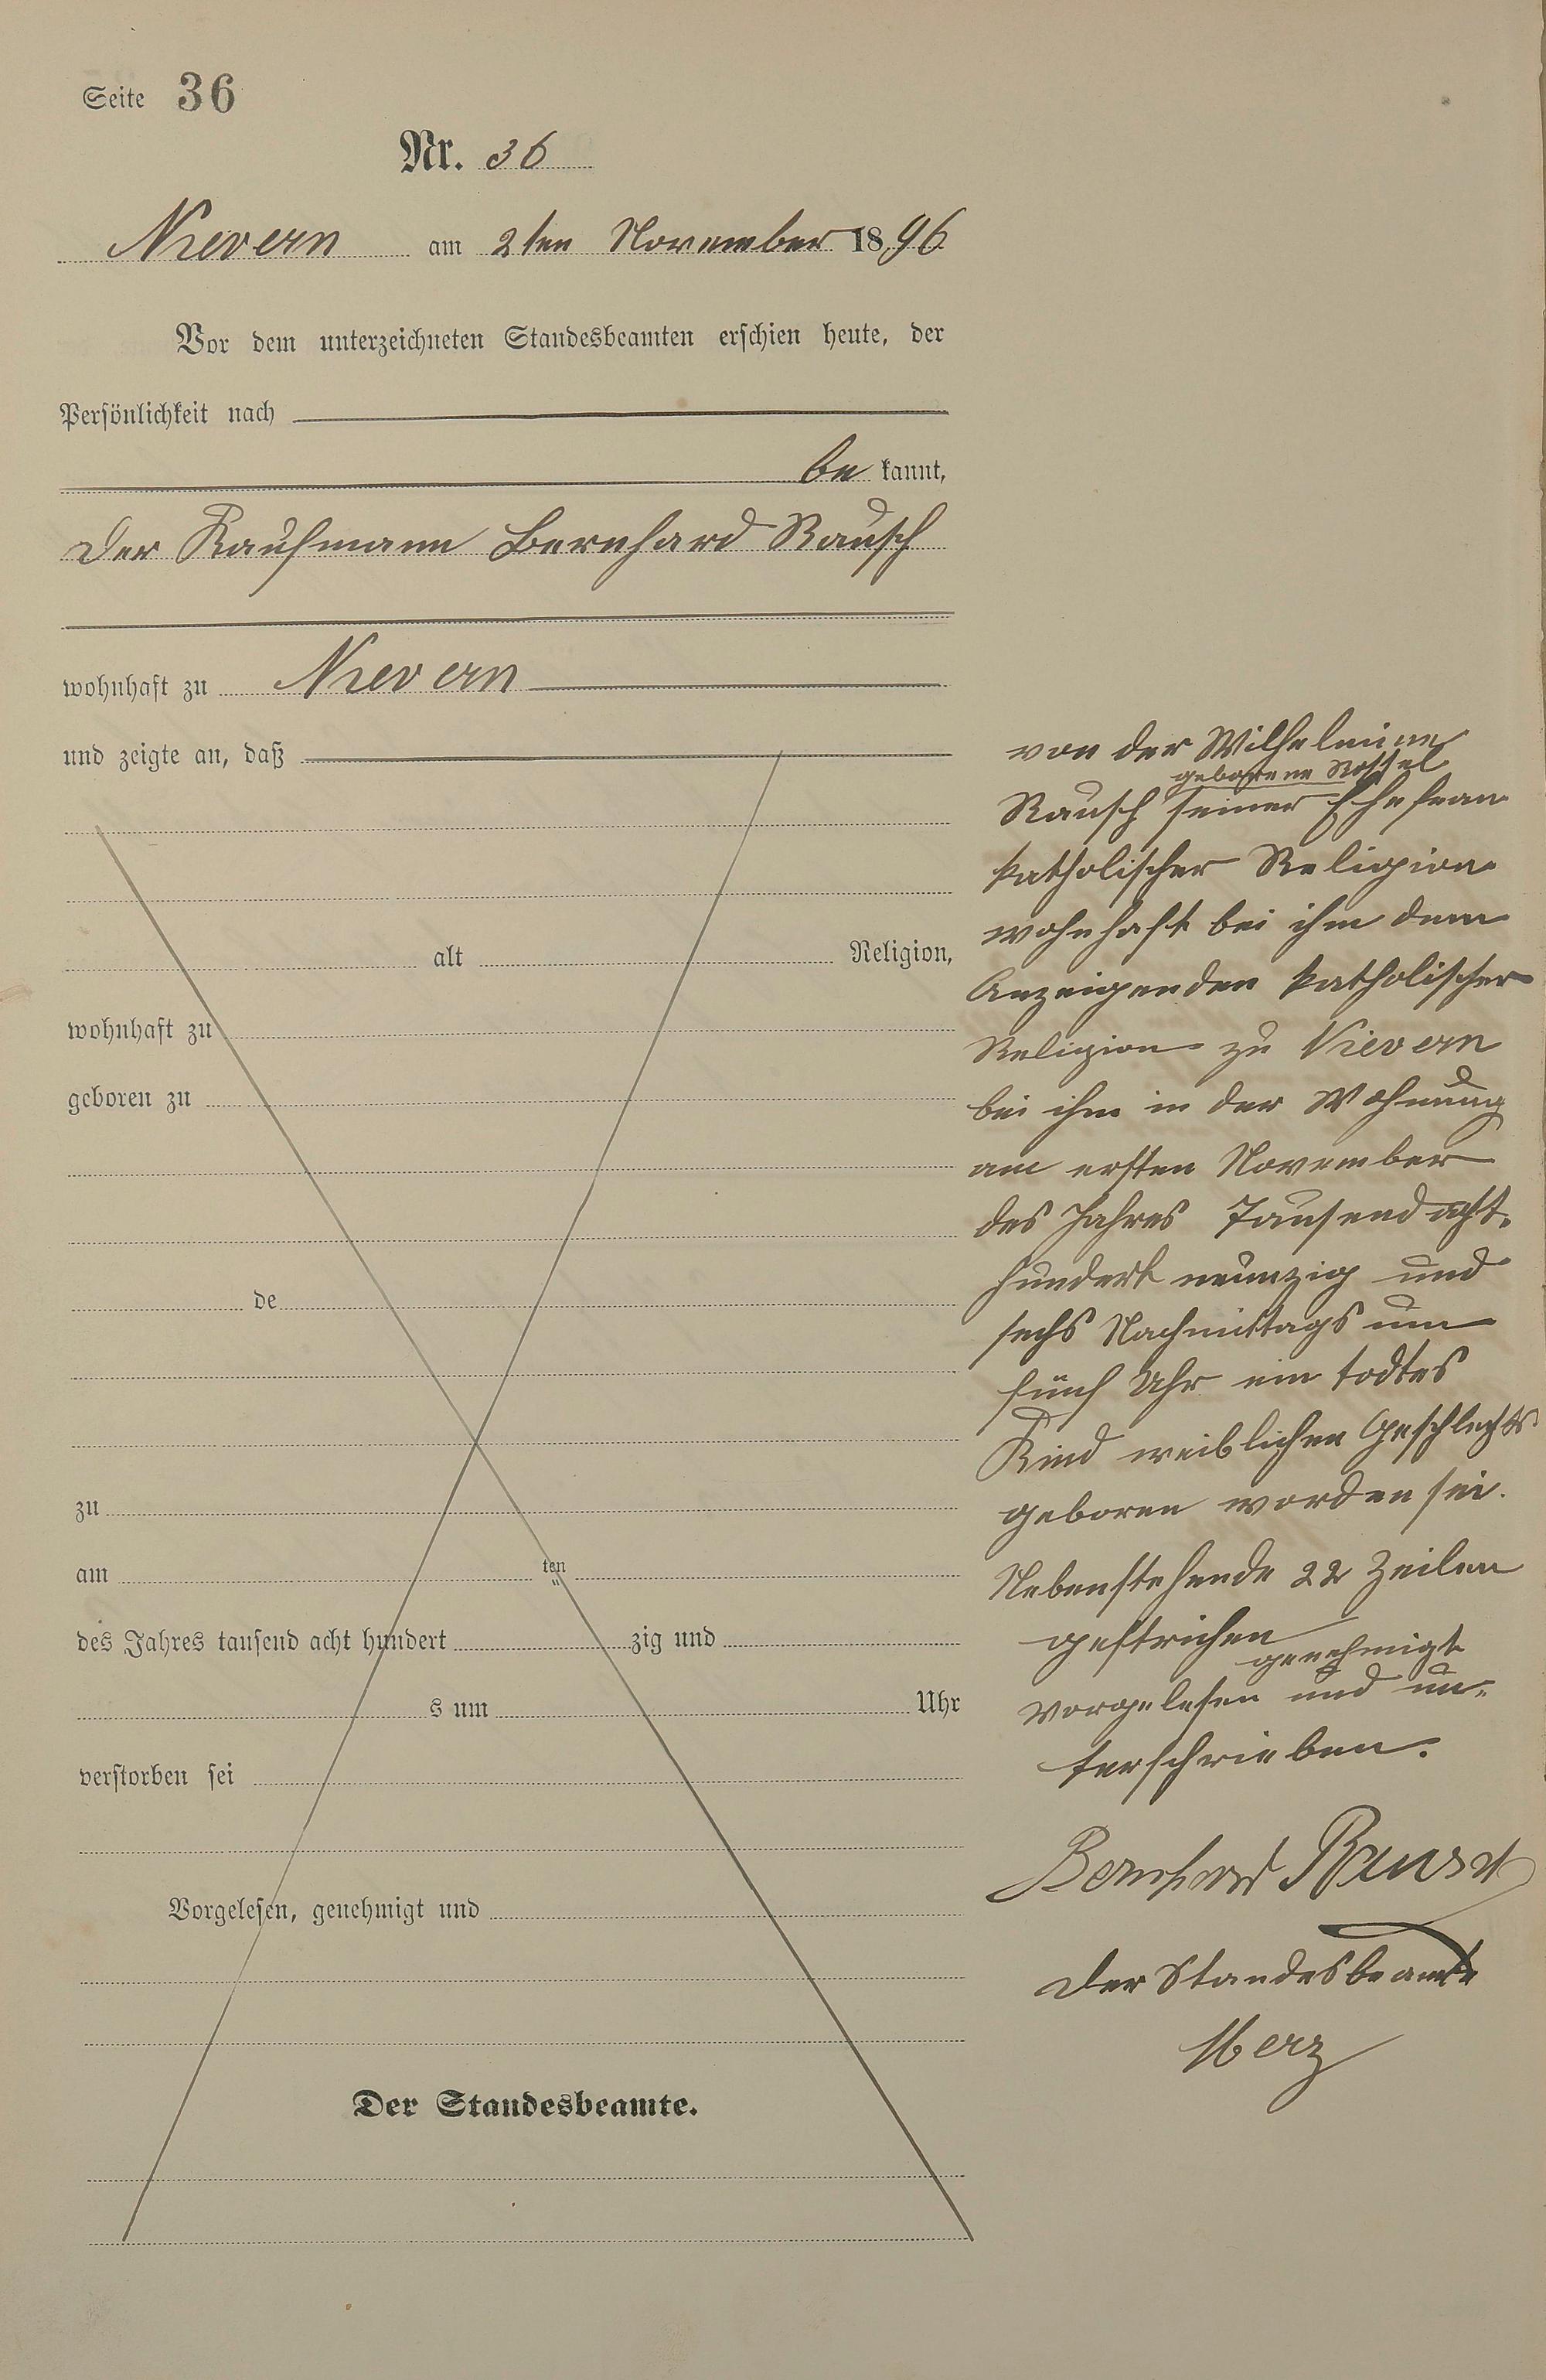 Seite 36
Nr. 36
Nievern am 2ten November 1896
Vor dem unterzeichneten Standesbeamten erschien heute, der
Persönlichkeit nach
be kannt,
der Kaufmann Bernhard Rausch
wohnhaft zu Nievern
und zeigte an, daß
alt Religion,
wohnhaft zu
geboren zu
de
zu
am ten
des Jahres tausend acht hundert zig und
s um Uhr
verstorben sei
Vorgelesen, genehmigt und
Der Standesbeamte.
von der Wilhelmine
geborene Rossel
Rausch seiner Ehefrau
katholischer Religion
wohnhaft bei ihm dem
Anzeigenden katholischer
Religion zu Nievern
bei ihm in der Wohnung
am ersten November
des Jahres Tausend acht-
hundert neunzig und
sechs Nachmittags um
fünf Uhr ein todtes
Kind weiblichen Geschlechts
geboren worden sei.
Nebenstehende 22 Zeilen
gestrichen
genehmigt
vorgelesen und un-
terschrieben.
Bernhard Rausch
Der Standesbeamte
Merz